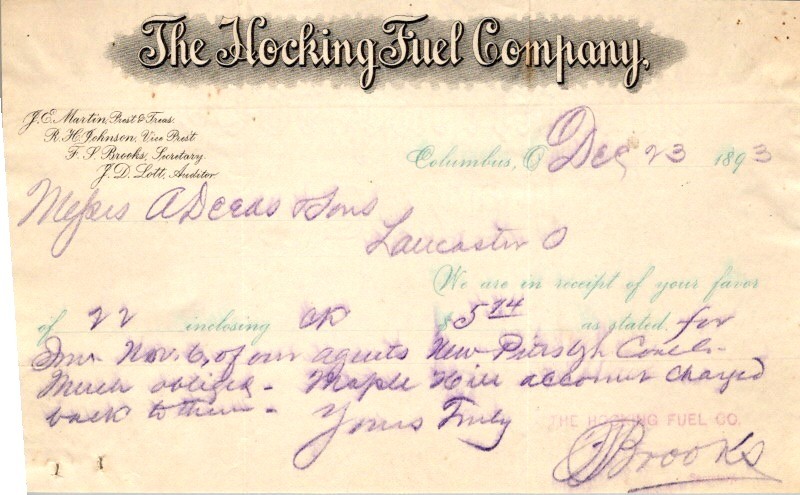 The Hocking Fuel Company,
J. E. Martin, Prest & Treas.
R. H. Johnson, Vice Prest
F. S. Brooks, Secretary.
J. D. Lott, Auditor
Columbus, O Dec 23 1893
Messrs A Deeds & Sons
Lancaster O
We are in receipt of your favor
of 22 inclosing CK $ 5 74 as stated, for
Inv. Nov. 6, of our agents New Pittsbgh Coal
Much obliged - Maple Hill account charged
back to them - Yours Truly
THE HOCKING FUEL CO.
FS Brooks